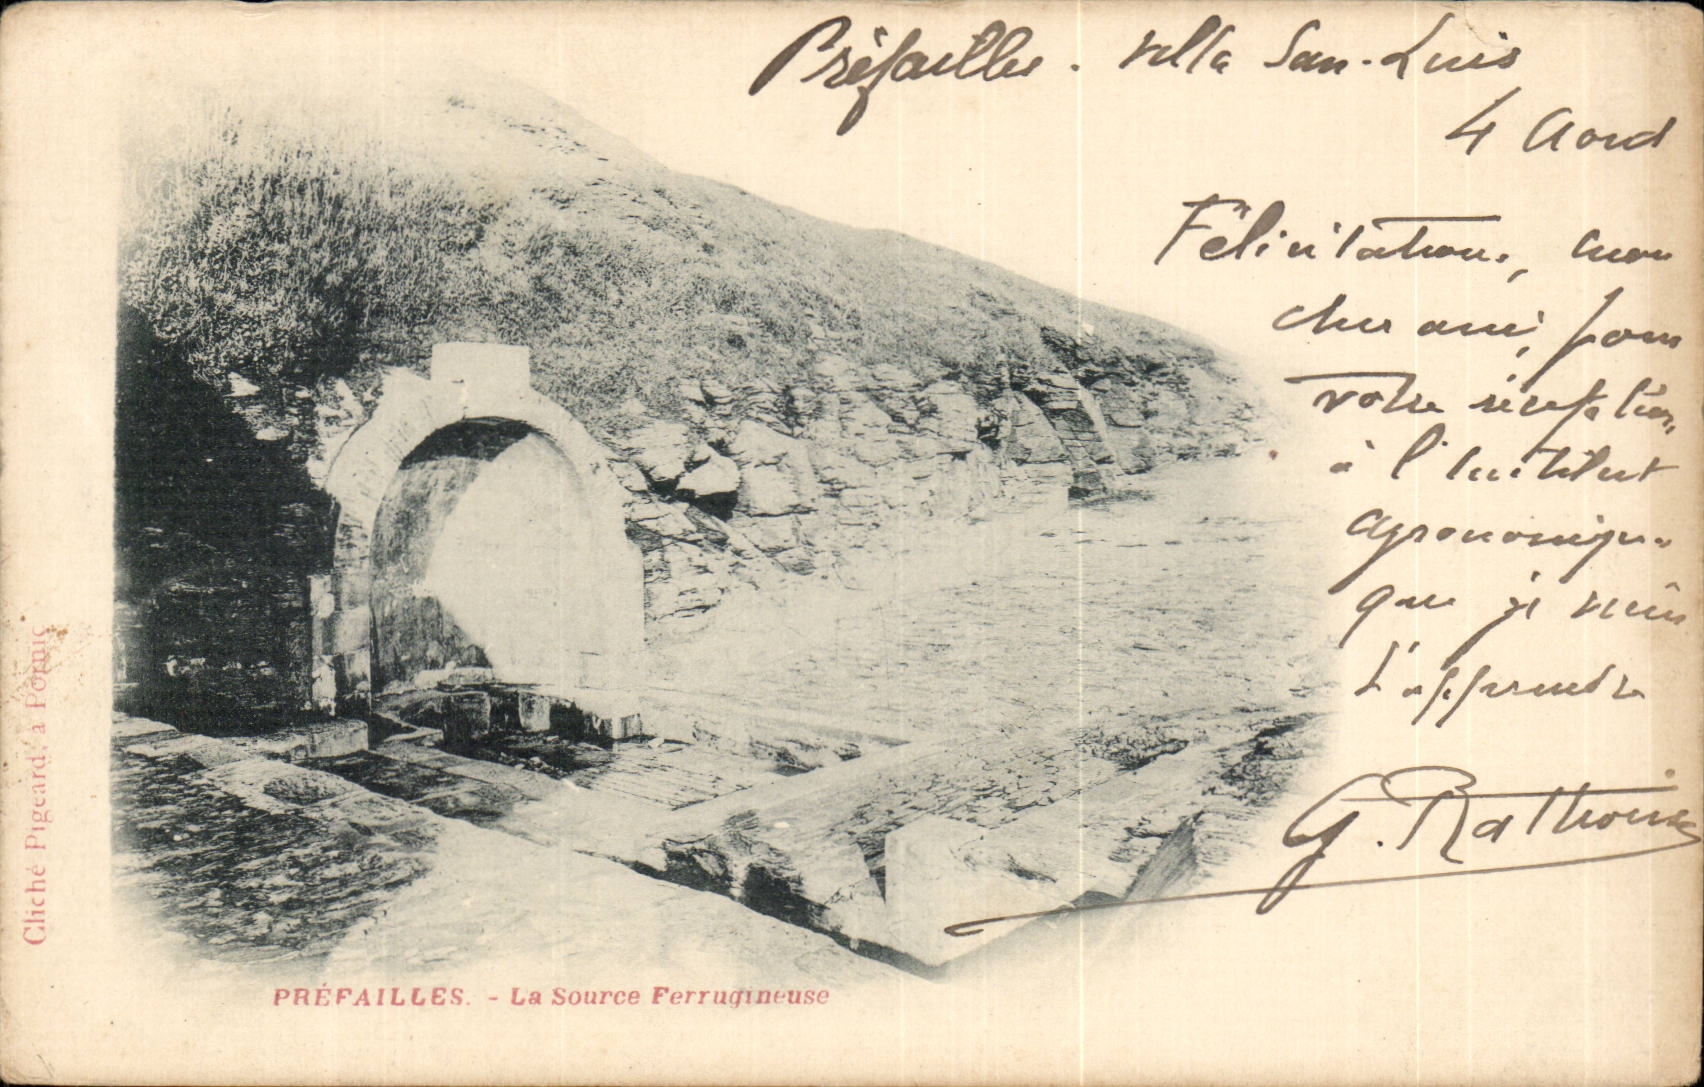 Préfailles. villa San-Luis
4 Aout
Félicitations, mon
cher ami, pour
votre réception
à l'Institut
agronomique
que je viens
d'apprendre
G.
PRÉFAILLES. - La Source Ferrugineuse
Cliché Pigeard, à Pornic